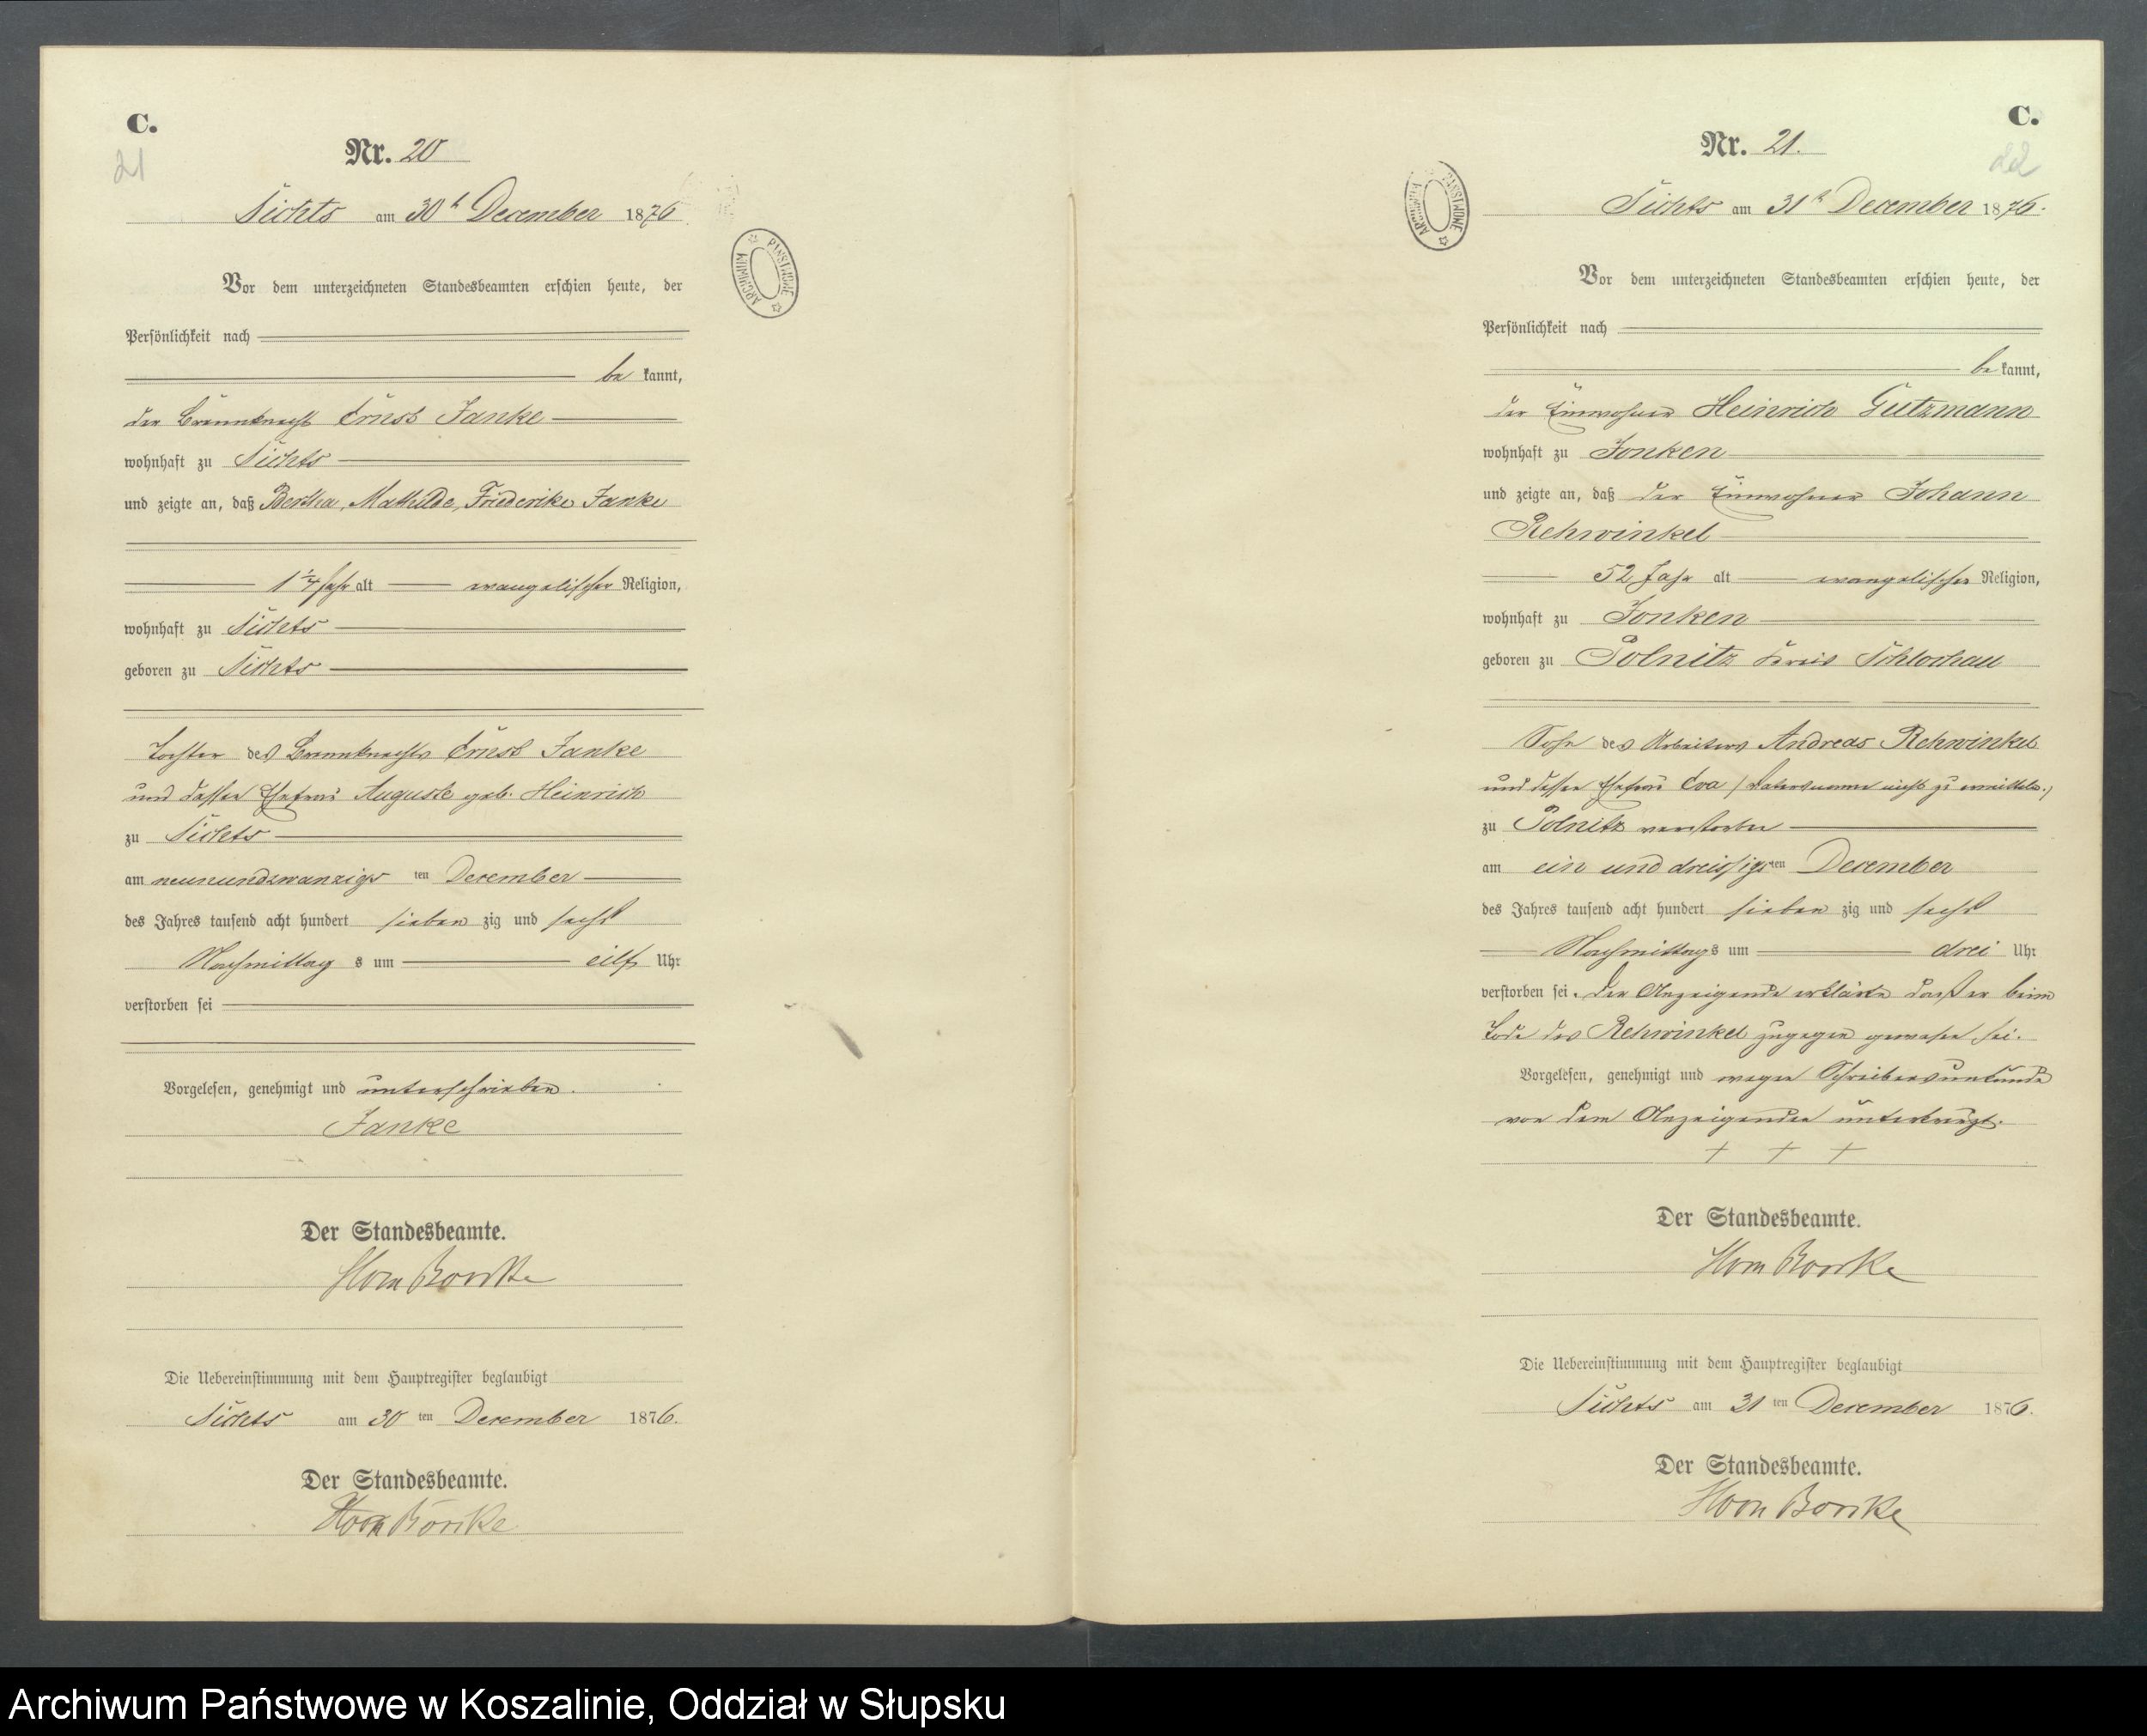 C.
21
Nr. 20
Sichts am 30t December 1876
Vor dem unterzeichneten Standesbeamten erschien heute, der
Persönlichkeit nach
be kannt,
der Brennknecht Ernst Janke
wohnhaft zu Sichts
und zeigte an, daß Bertha, Mathilde, Friederike Janke
1 1/4 Jahr alt evangelischer Religion,
wohnhaft zu Sichts
geboren zu Sichts
Tochter des Brennknechts Ernst Janke
und dessen Ehefrau Auguste geb. Heinrich
zu Sichts
am neunundzwanzigs ten December
des Jahres tausend acht hundert sieben zig und sechs
Nachmittag s um eilf Uhr
verstorben sei
Vorgelesen, genehmigt und unterschrieben.
Janke
Der Standesbeamte.
Die Uebereinstimmung mit dem Hauptregister beglaubigt
Sichts am 30 ten December 1876.
Der Standesbeamte.
ARCHIWUM PAŃSTWOWE
C.
22
Nr. 21.
Sichts am 31t December 1876.
Vor dem unterzeichneten Standesbeamten erschien heute, der
Persönlichkeit nach
be kannt,
der Einwohner Heinrich Gutzmann
wohnhaft zu Jonken
und zeigte an, daß der Einwohner Johann
Rehwinkel
52 Jahr alt evangelischer Religion,
wohnhaft zu Jonken
geboren zu Polnitz Kreis Schlochau
Sohn des Arbeiters Andreas Rehwinkel
und dessen Ehefrau Eva (Vatersname nicht zu ermitteln.)
zu Polnitz verstorben
am ein und dreissigs ten December
des Jahres tausend acht hundert sieben zig und sechs
Nachmittags um drei Uhr
verstorben sei. Der Anzeigende erklärte daß er beim
Tode des Rehwinkel zugegen gewesen sei.
Vorgelesen, genehmigt und wegen Schreibensunkunde
von dem Anzeigenden unterkreuzt.
+ + +
Der Standesbeamte.
Die Uebereinstimmung mit dem Hauptregister beglaubigt
Sichts am 31 ten December 1876.
Der Standesbeamte.
ARCHIWUM PAŃSTWOWE
Archiwum Państwowe w Koszalinie, Oddział w Słupsku